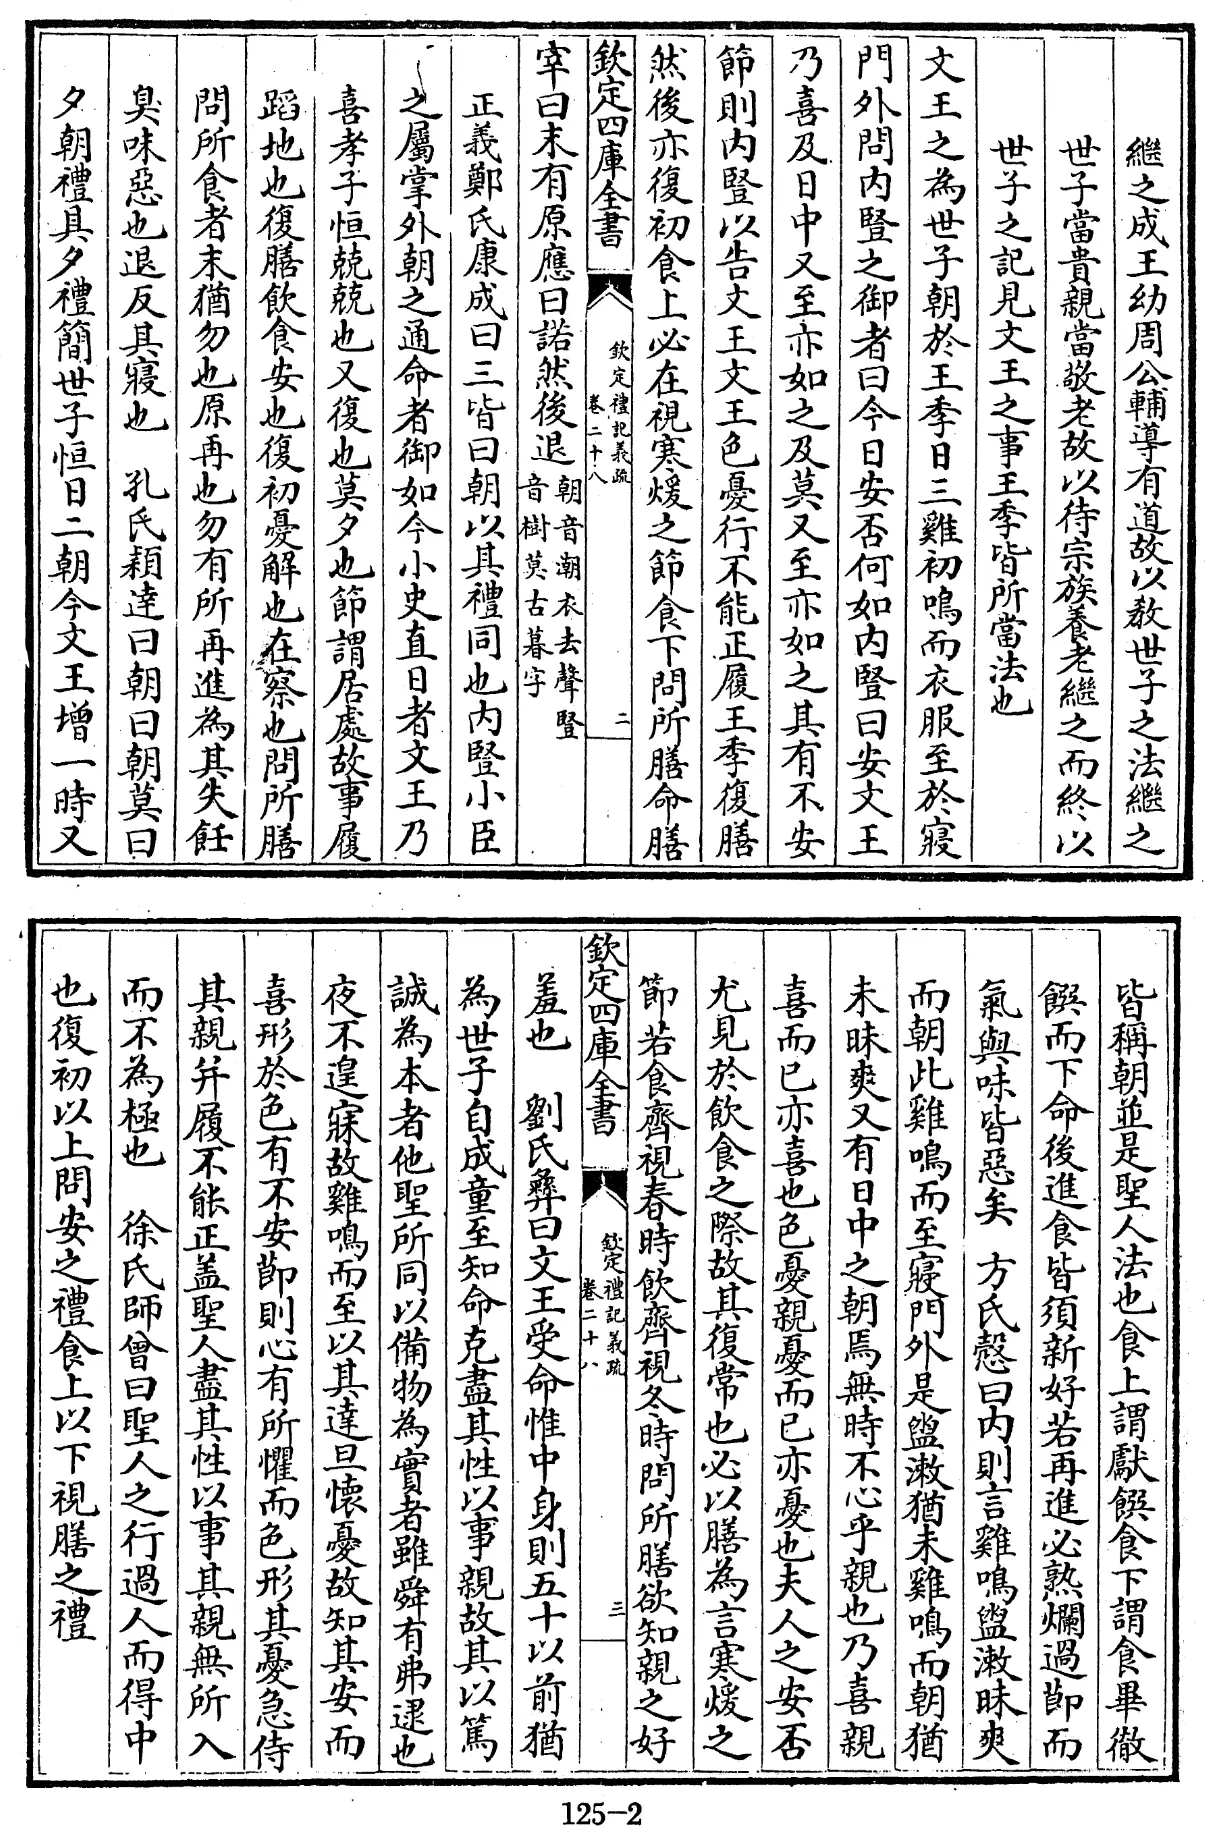 繼之成王幼周公輔導有道故以教世子之法繼之
世子當貴親當敬老故以待宗族養老繼之而終以
世子之記見文王之事王季皆所當法也
文王之為世子朝於王季日三雞初鳴而衣服至於寢
門外問內豎之御者曰今日安否何如內豎曰安文王
乃喜及日中又至亦如之及莫又至亦如之其有不安
節則內豎以告文王文王色憂行不能正履王季復膳
然後亦復初食上必在視寒煖之節食下問所膳命膳
欽定四庫全書
欽定禮記義疏
卷二十八
二
宰曰末有原應曰諾然後退
朝音潮衣去聲豎
音樹莫古暮字
正義鄭氏康成曰三皆曰朝以其禮同也內豎小臣
之屬掌外朝之通命者御如今小史直日者文王乃
喜孝子恒兢兢也又復也莫夕也節謂居處故事履
蹈地也復膳飲食安也復初憂解也在察也問所膳
問所食者末猶勿也原再也勿有所再進為其失飪
臭味惡也退反其寢也　孔氏穎達曰朝曰朝莫曰
夕朝禮具夕禮簡世子恒日二朝今文王增一時又
皆稱朝並是聖人法也食上謂獻饌食下謂食畢徹
饌而下命後進食皆須新好若再進必熟爛過節而
氣與味皆惡矣　方氏慤曰內則言雞鳴盥漱昧爽
而朝此雞鳴而至寢門外是盥漱猶未雞鳴而朝猶
未昧爽又有日中之朝焉無時不心乎親也乃喜親
喜而已亦喜也色憂親憂而已亦憂也夫人之安否
尤見於飲食之際故其復常也必以膳為言寒煖之
節若食齊視春時飲齊視冬時問所膳欲知親之好
欽定四庫全書
欽定禮記義疏
卷二十八
三
羞也　劉氏彝曰文王受命惟中身則五十以前猶
為世子自成童至知命克盡其性以事親故其以篤
誠為本者他聖所同以備物為實者雖舜有弗逮也
夜不遑寐故雞鳴而至以其達旦懷憂故知其安而
喜形於色有不安節則心有所懼而色形其憂急侍
其親并履不能正盖聖人盡其性以事其親無所入
而不為極也　徐氏師曾曰聖人之行過人而得中
也復初以上問安之禮食上以下視膳之禮
125-2